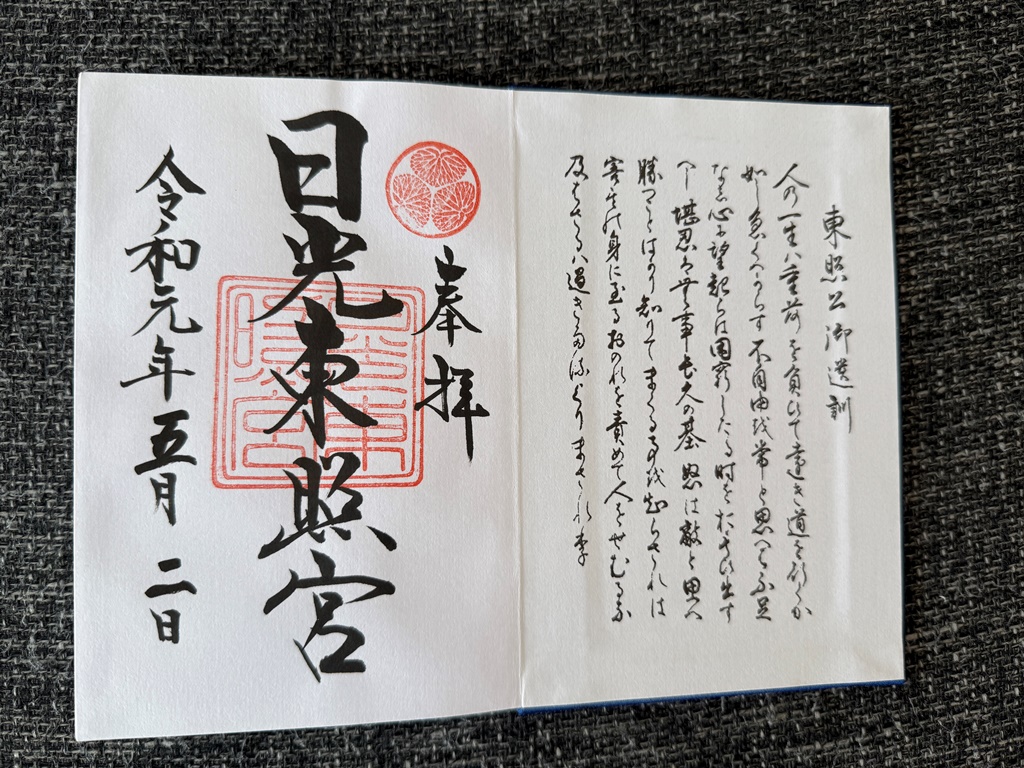 東照公御遺訓
人の一生ハ重荷を負ひて遠き道を行くか
如し急くへからす不自由を常と思へハ不足
なし心に望起らは困窮したる時をおもひ出す
へし堪忍ハ無事長久の基怒は敵と思へ
勝つことはかり知りてまくる事を知らされは
害其身に至るおのれを責めて人をせむるな
及はさるハ過きたるよりまされり
奉拝
日光東照宮
令和元年五月二日